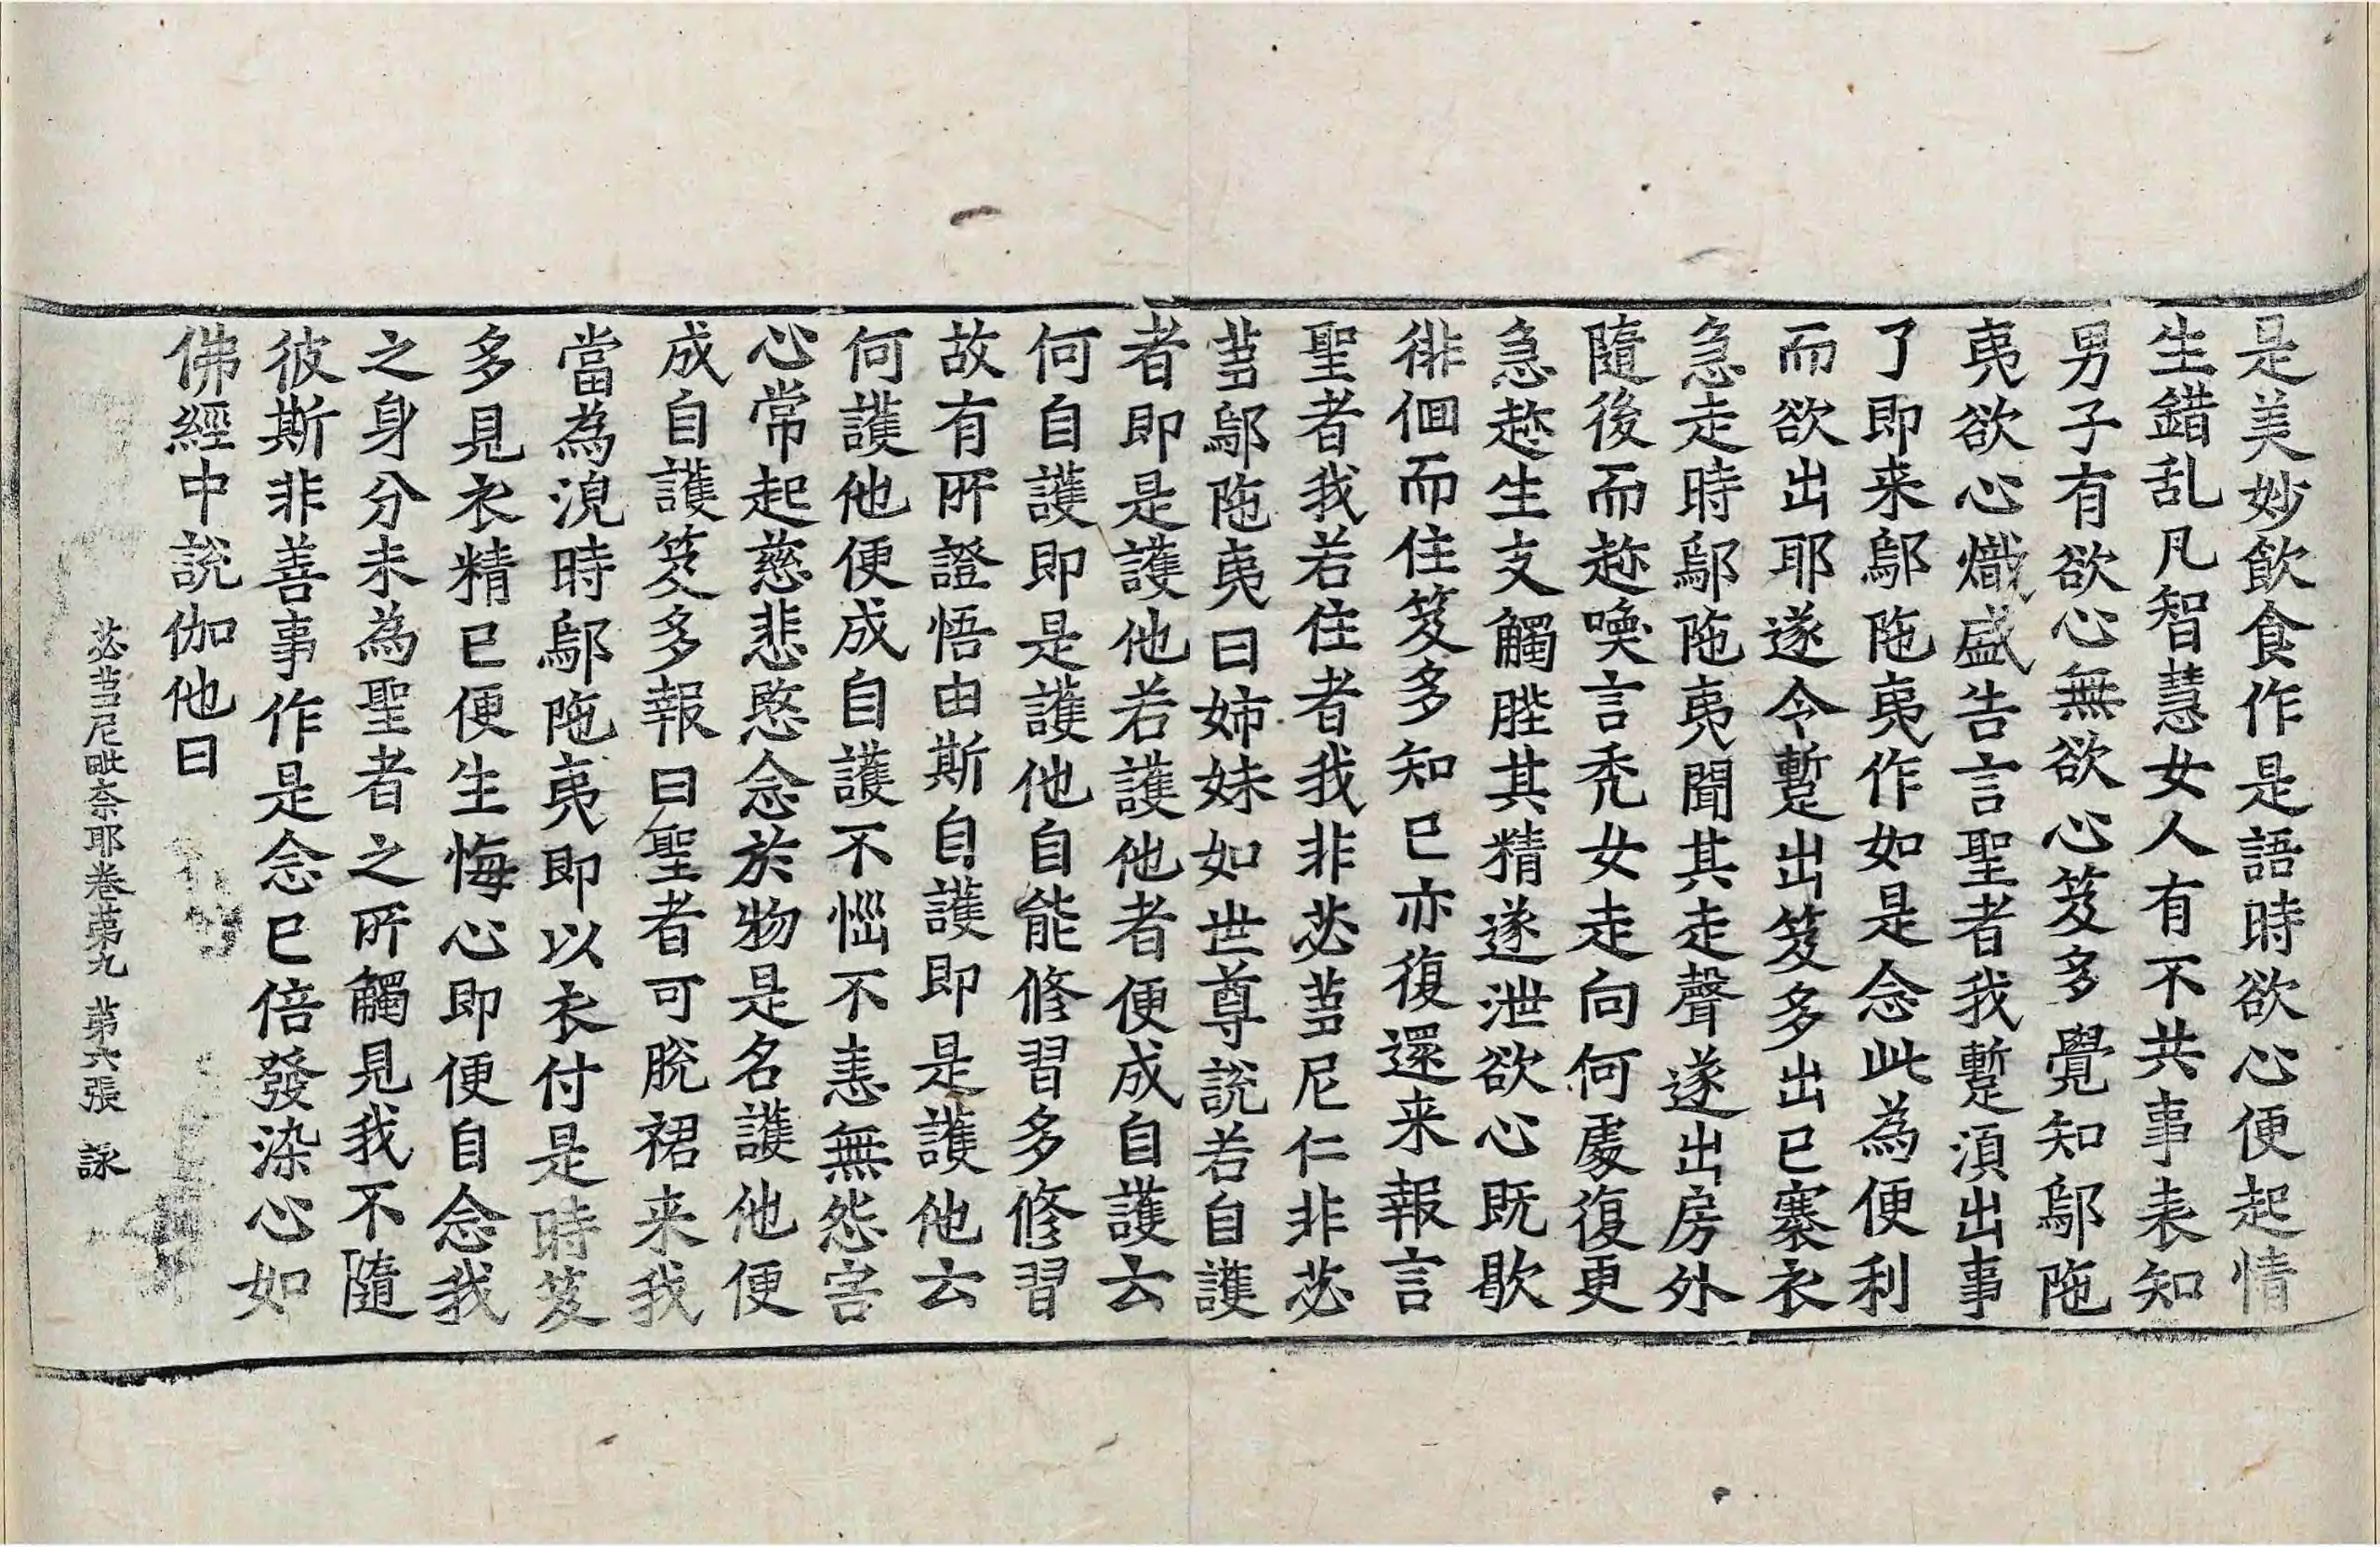 是美妙飲食作是語時欲心便起情
生錯乱凡智慧女人有不共事表知
男子有欲心無欲心笈多覺知鄔陁
夷欲心熾盛告言聖者我蹔湏出事
了即来鄔陁夷作如是念此為便利
而欲出耶遂令蹔出笈多出已褰衣
急走時鄔陁夷聞其走聲遂出房外
隨後而趂喚言禿女走向何處復更
急趂生支觸䏶其精遂泄欲心既歇
徘徊而住笈多知已亦復還来報言
聖者我若住者我非苾蒭尼仁非苾
蒭鄔陁夷曰姉妹如世尊說若自護
者即是護他若護他者便成自護云
何自護即是護他自能修習多修習
故有所證悟由斯自護即是護他云
何護他便成自護不惱不恚無怨害
心常起慈悲愍念於物是名護他便
成自護笈多報曰聖者可脫裙来我
當為浣時鄔陁夷即以衣付是時笈
多見衣精已便生悔心即便自念我
之身分未為聖者之所觸見我不隨
彼斯非善事作是念已倍發染心如
佛經中說伽他曰
苾蒭尼毗柰耶卷第九　第六張　詠